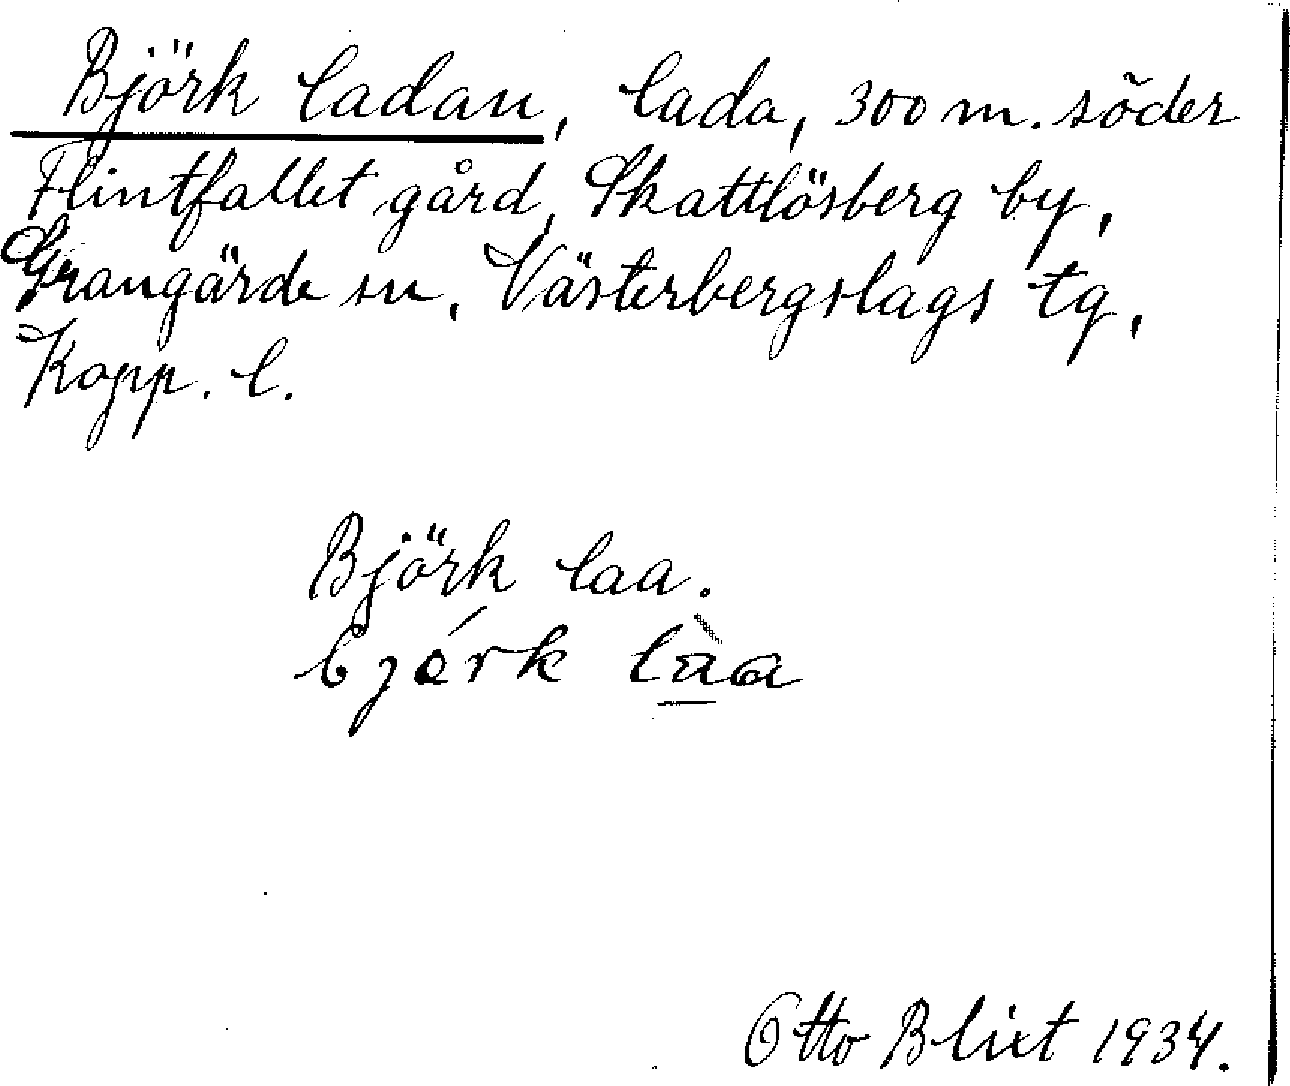 Björk ladan, lada, 300 m. söder
Flintfallet gård, Skattlösberg by,
Grangärde sn, Västerbergslags tg,
Kopp. l.
Björk laa.
bjórk làa
Otto Blixt 1934.